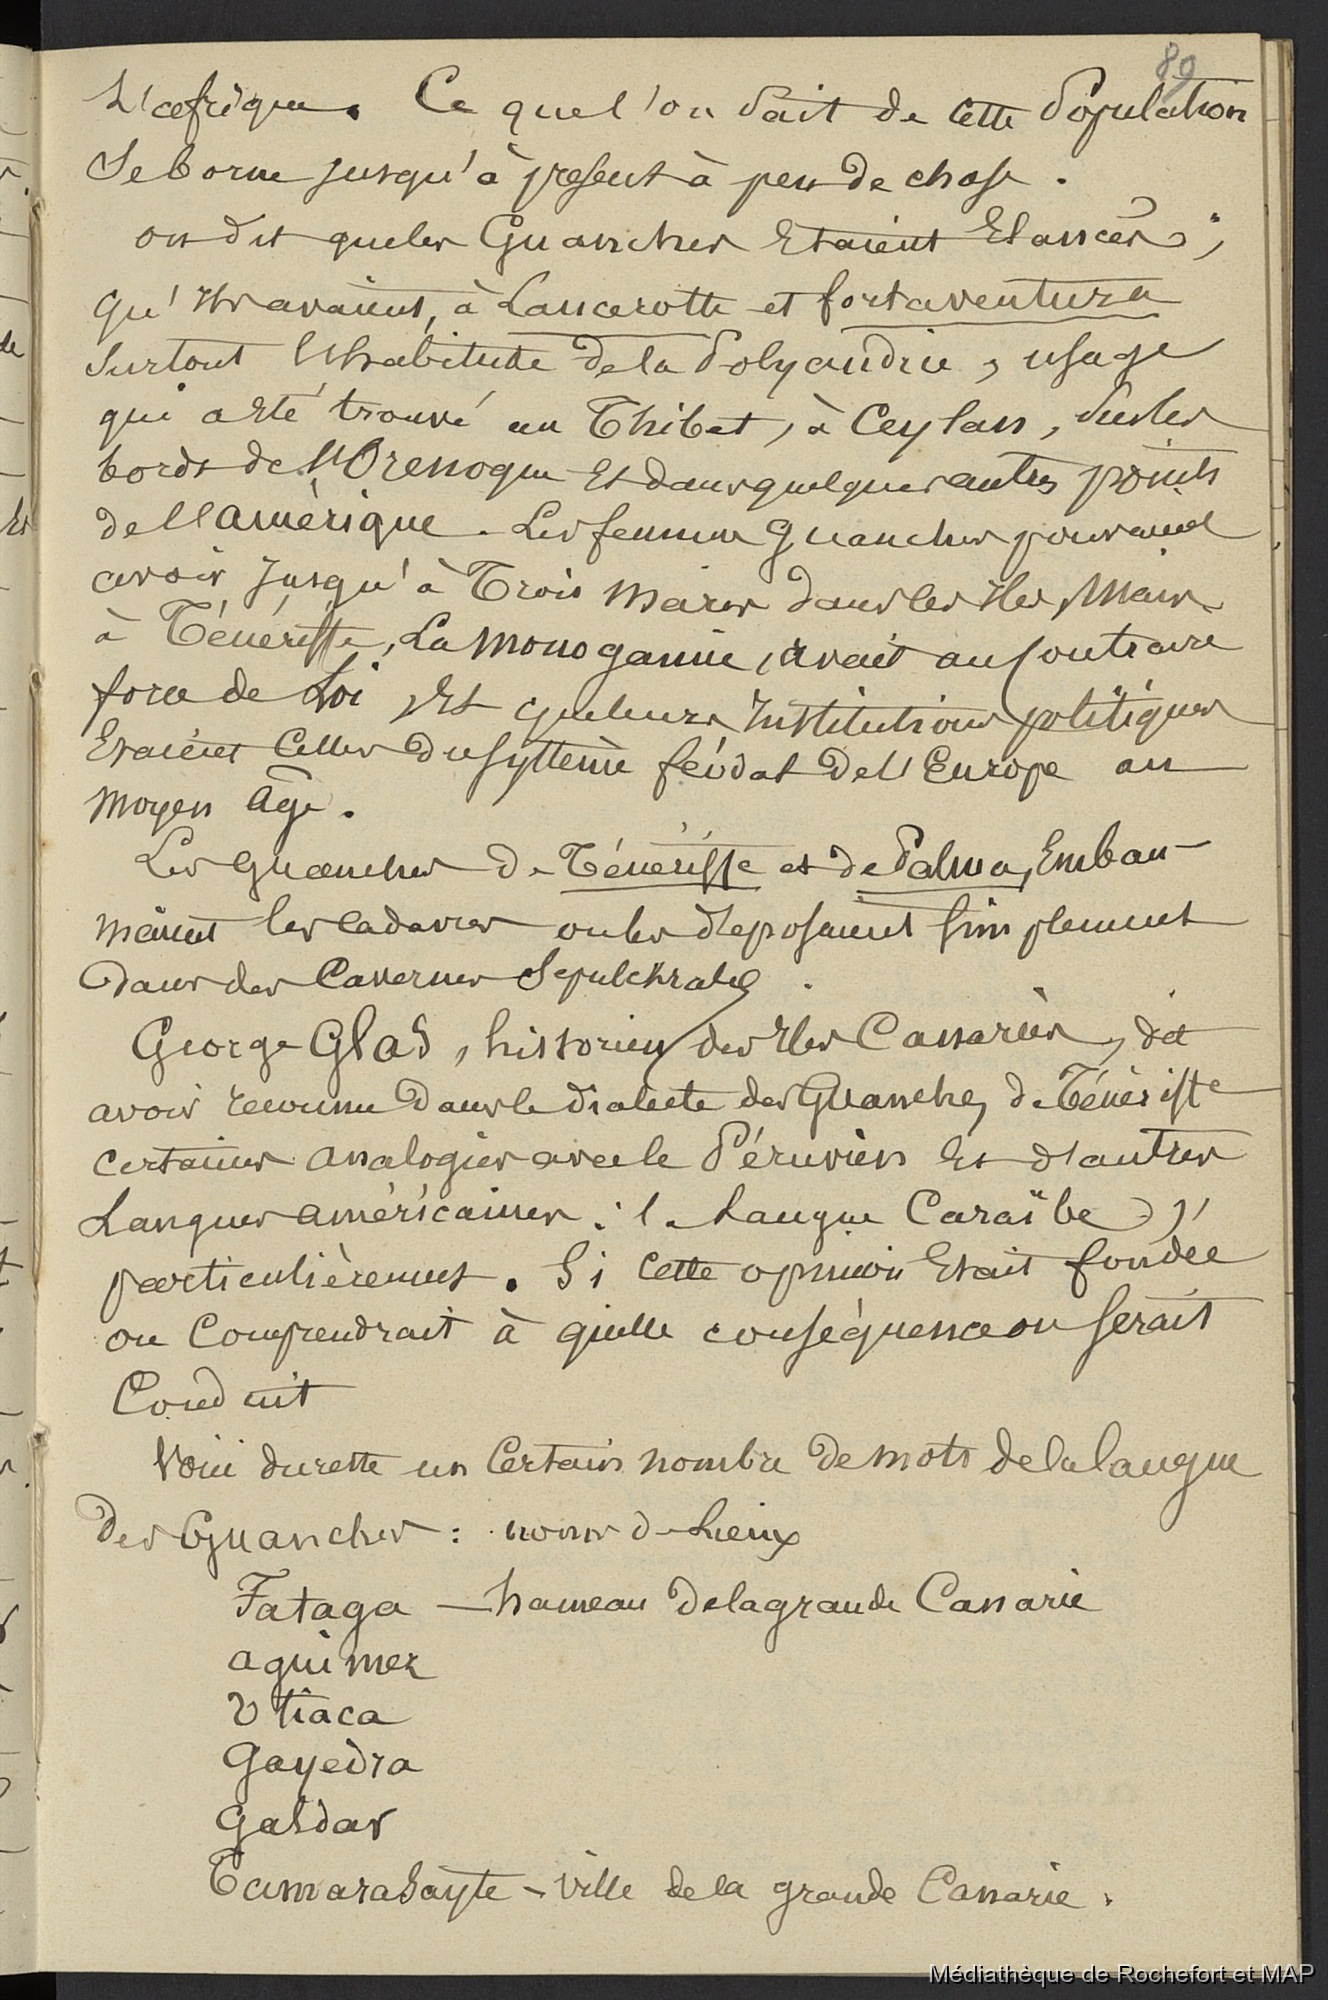 89
L'afrique. Ce que l'on Sait de Cette Population
Se borne jusqu'à présent à peu de chose.
on dit que les Guanches Etaient Elancés ;
qu'ils avaient, à Lancerotte et fortaventura
Surtout l'habitude de la Polyandrie, usage
qui a eté trouvé au Thibet, à Ceylan, Sur les
bords de l'Orenoque Et dans quelques autres points
de l'Amèrique. Les femmes Guanches pouvaient
avoir Jusqu'à Trois Maris dans les Iles, Mais
à Ténériffe, La Monogamie, avait au Contraire
force de Loi, Et que leurs Institutions politiques
Etaient Celles du Systême féodal de l'Europe au
Moyen âge.
Les Guanches De Ténériffe et de Palma, Embau-
maient les Cadavres ou les déposaient Simplement
Dans des Cavernes Sepulchrales.
George Glas, historien des Iles Canaries, dit
avoir reconnu Dans le dialecte des Guanches de Ténériffe
Certaines Analogies avec le Péruvien Et d'autres
Langues américaines : la Langue Caraïbe
particulièrement. Si Cette opinion Etait fondée
on Comprendrait à quelle conséquence on Serait
Conduit
Voici du reste un Certain nombre De mots de la langue
Des Guanches : noms de Lieux
Fataga — hameau De la grande Canarie
aguimez
Utiaca
Gayedra
Galdar
Tamarasayte - Ville de la grande Canarie.
Médiathèque de Rochefort et MAP